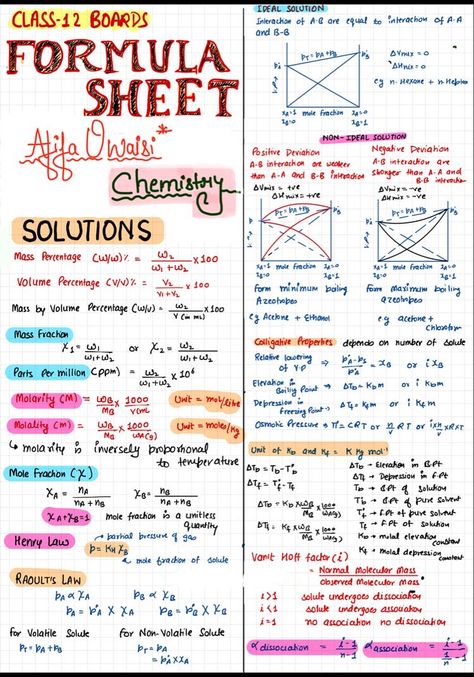 CLASS-12 BOARDS
FORMULA
SHEET
Afifa Owaisi
Chemistry
SOLUTIONS
Mass Percentage (W/W)% = ω₂/(ω₁+ω₂) ×100
Volume Percentage (V/V)% = V₂/(V₁+V₂) ×100
Mass by Volume Percentage (W/V) = ω₂/(V (in mL)) ×100
Mass Fraction
X₁ = ω₁/(ω₁+ω₂) or X₂ = ω₂/(ω₁+ω₂)
Parts Per million (ppm) = ω₂/(ω₁+ω₂) ×10⁶
Molarity (M) = ωB/MB × 1000/V(mL) Unit = mol/litre
Molality (M) = ωB/MB × 1000/WA(g) Unit = moles/Kg
↳ molarity is inversely proportional
to temperature
Mole Fraction (χ)
χA = nA/(nA+nB) χB = nB/(nA+nB)
χA+χB=1 mole fraction is a unitless
quantity
Henry Law
partial pressure of gas
p = KH χB
mole fraction of solute
RAOULT'S LAW
pA ∝ χA pB ∝ χB
pA = p°A × χA pB = p°B × χB
for Volatile Solute for Non-Volatile Solute
PT = PA + PB PT = PA
= p°A × χA
IDEAL SOLUTION
Interaction of A-B are equal to interaction of A-A
and B-B
PT = PA + PB
p°B
ΔVmix = 0
ΔHmix = 0
eg n-Hexane + n-Heptane
XA=1 mole fraction XA=0
XB=0 XB=1
NON-IDEAL SOLUTION
Positive Deviation
A-B interaction are weaker
than A-A and B-B interaction
ΔVmix = +ve
ΔHmix = +ve
PT = PA + PB
p°B
XA=1 mole fraction XA=0
XB=0 XB=1
form minimum boiling
Azeotropes
eg Acetone + Ethanol
Negative Deviation
A-B interaction are
stronger than A-A and
B-B interaction
ΔVmix = -ve
ΔHmix = -ve
PT = PA + PB
p°B
XA=1 mole fraction XA=0
XB=0 XB=1
form maximum boiling
Azeotropes
eg acetone +
chloroform
Colligative Properties depends on number of Solute
Relative lowering
of V.P ⇒ (p°A - pA)/p°A = XB or i XB
Elevation in
Boiling Point ⇒ ΔTb = Kb m or i Kb m
Depression in
freezing Point ⇒ ΔTf = Kf m or i Kf m
Osmotic Pressure ⇒ π = CRT or n/V RT or i×n/V×RT
Unit of Kb and Kf = K Kg mol⁻¹
ΔTb = Tb - T°b
ΔTf = T°f - Tf
ΔTb = Kb × ωB/MB × 1000/WA(g)
ΔTf = Kf × ωB/MB × 1000/WA(g)
ΔTb → Elevation in B.Pt
ΔTf → Depression in F.Pt
Tb → B.Pt of solution
T°b → B.Pt of pure solvent
T°f → F.Pt of pure solvent
Tf → F.Pt of solution
Kb → molal elevation constant
Kf → molal depression constant
Vanit Hoff factor (i)
= Normal molecular mass
Observed molecular mass
i>1 solute undergoes dissociation
i<1 solute undergoes association
i=1 no association no dissociation
α dissociation = (i-1)/(n-1)
α association = (i-1)/(1/n - 1)